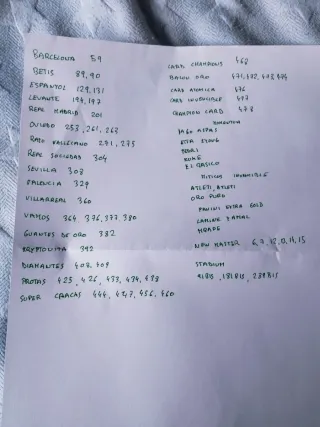 BARCELONA 59
BETIS 89,90
ESPANYOL 129,131
LEVANTE 194,197
REAL MADRID 201
OVIEDO 253,261,263
RAYO VALLECANO 271,275
REAL SOCIEDAD 304
SEVILLA 308
VALENCIA 329
VILLARREAL 360
VAMOS 364, 376,377,380
GUANTES DE ORO 382
KRYPTONITA 392
DIAMANTES 407,409
PROTAS 423,426,433,434,438
SUPER CRACKS 444, 447,456,460
CARD CHAMPIONS 468
BALON ORO 471,472,473,474
CARD ATOMICA 476
CARD INVENCIBLE 477
CHAMPION CARD 478
IAGO ASPAS
PEDRI
KOKE
EL CLASICO
INVENCIBLE
ATLETI, ATLETI
ORO PURO
PANINI EXTRA GOLD
LAMINE YAMAL
MBAPE
NEW MASTER 6,9,12,13,14,15
STADIUM
91BIS, 181BIS, 288BIS